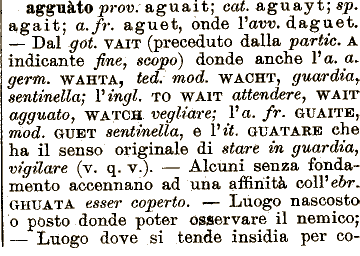 agguàto prov. aguait; cat. aguayt; sp.
agait; a. fr. aguet, onde l'avv. daguet.
— Dal got. VAIT (preceduto dalla partic. A
indicante fine, scopo) donde anche l'a. a.
germ. WAHTA, ted. mod. WACHT, guardia,
sentinella; l'ingl. TO WAIT attendere, WAIT
agguato, WATCH vegliare; l'a. fr. GUAITE,
mod. GUET sentinella, e l'it. GUATARE che
ha il senso originale di stare in guardia,
vigilare (v. q. v.). — Alcuni senza fonda-
mento accennano ad una affinità coll'ebr.
GHUATA esser coperto. — Luogo nascosto
o posto donde poter osservare il nemico;
— Luogo dove si tende insidia per co-